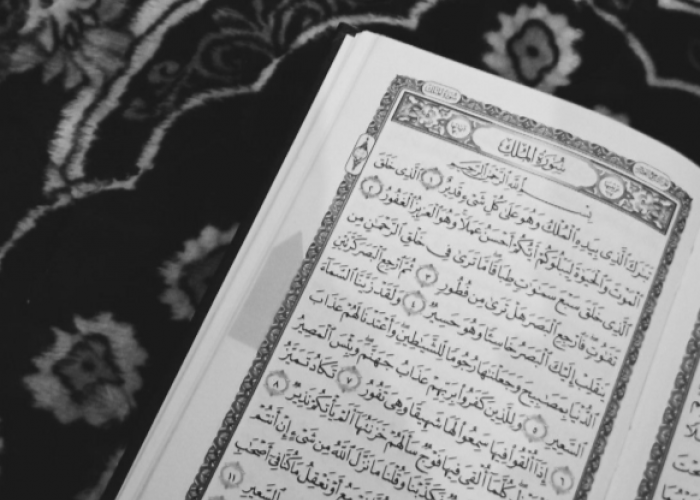 سُورَةُ الْمُلْكِ
بِسْمِ اللَّهِ الرَّحْمَٰنِ الرَّحِيمِ
تَبَٰرَكَ الَّذِى بِيَدِهِ الْمُلْكُ وَهُوَ عَلَىٰ كُلِّ شَىْءٍ قَدِيرٌ ١ الَّذِى خَلَقَ
الْمَوْتَ وَالْحَيَوٰةَ لِيَبْلُوَكُمْ أَيُّكُمْ أَحْسَنُ عَمَلًا وَهُوَ الْعَزِيزُ الْغَفُورُ ٢
الَّذِى خَلَقَ سَبْعَ سَمَٰوَٰتٍ طِبَاقًا مَّا تَرَىٰ فِى خَلْقِ الرَّحْمَٰنِ مِن
تَفَٰوُتٍ فَارْجِعِ الْبَصَرَ هَلْ تَرَىٰ مِن فُطُورٍ ٣ ثُمَّ ارْجِعِ الْبَصَرَ كَرَّتَيْنِ
يَنقَلِبْ إِلَيْكَ الْبَصَرُ خَاسِئًا وَهُوَ حَسِيرٌ ٤ وَلَقَدْ زَيَّنَّا السَّمَاءَ
الدُّنْيَا بِمَصَٰبِيحَ وَجَعَلْنَٰهَا رُجُومًا لِّلشَّيَٰطِينِ وَأَعْتَدْنَا لَهُمْ عَذَابَ
السَّعِيرِ ٥ وَلِلَّذِينَ كَفَرُوا بِرَبِّهِمْ عَذَابُ جَهَنَّمَ وَبِئْسَ الْمَصِيرُ
٦ إِذَا أُلْقُوا فِيهَا سَمِعُوا لَهَا شَهِيقًا وَهِىَ تَفُورُ ٧ تَكَادُ تَمَيَّزُ
كُلَّمَا أُلْقِىَ فِيهَا فَوْجٌ سَأَلَهُمْ خَزَنَتُهَا أَلَمْ يَأْتِكُمْ نَذِيرٌ ٨
فَكَذَّبْنَا وَقُلْنَا مَا نَزَّلَ اللَّهُ مِن شَىْءٍ إِنْ أَنتُمْ
أَوْ نَعْقِلُ مَا كُنَّا فِى أَصْحَٰبِ
السَّعِيرِ ١١